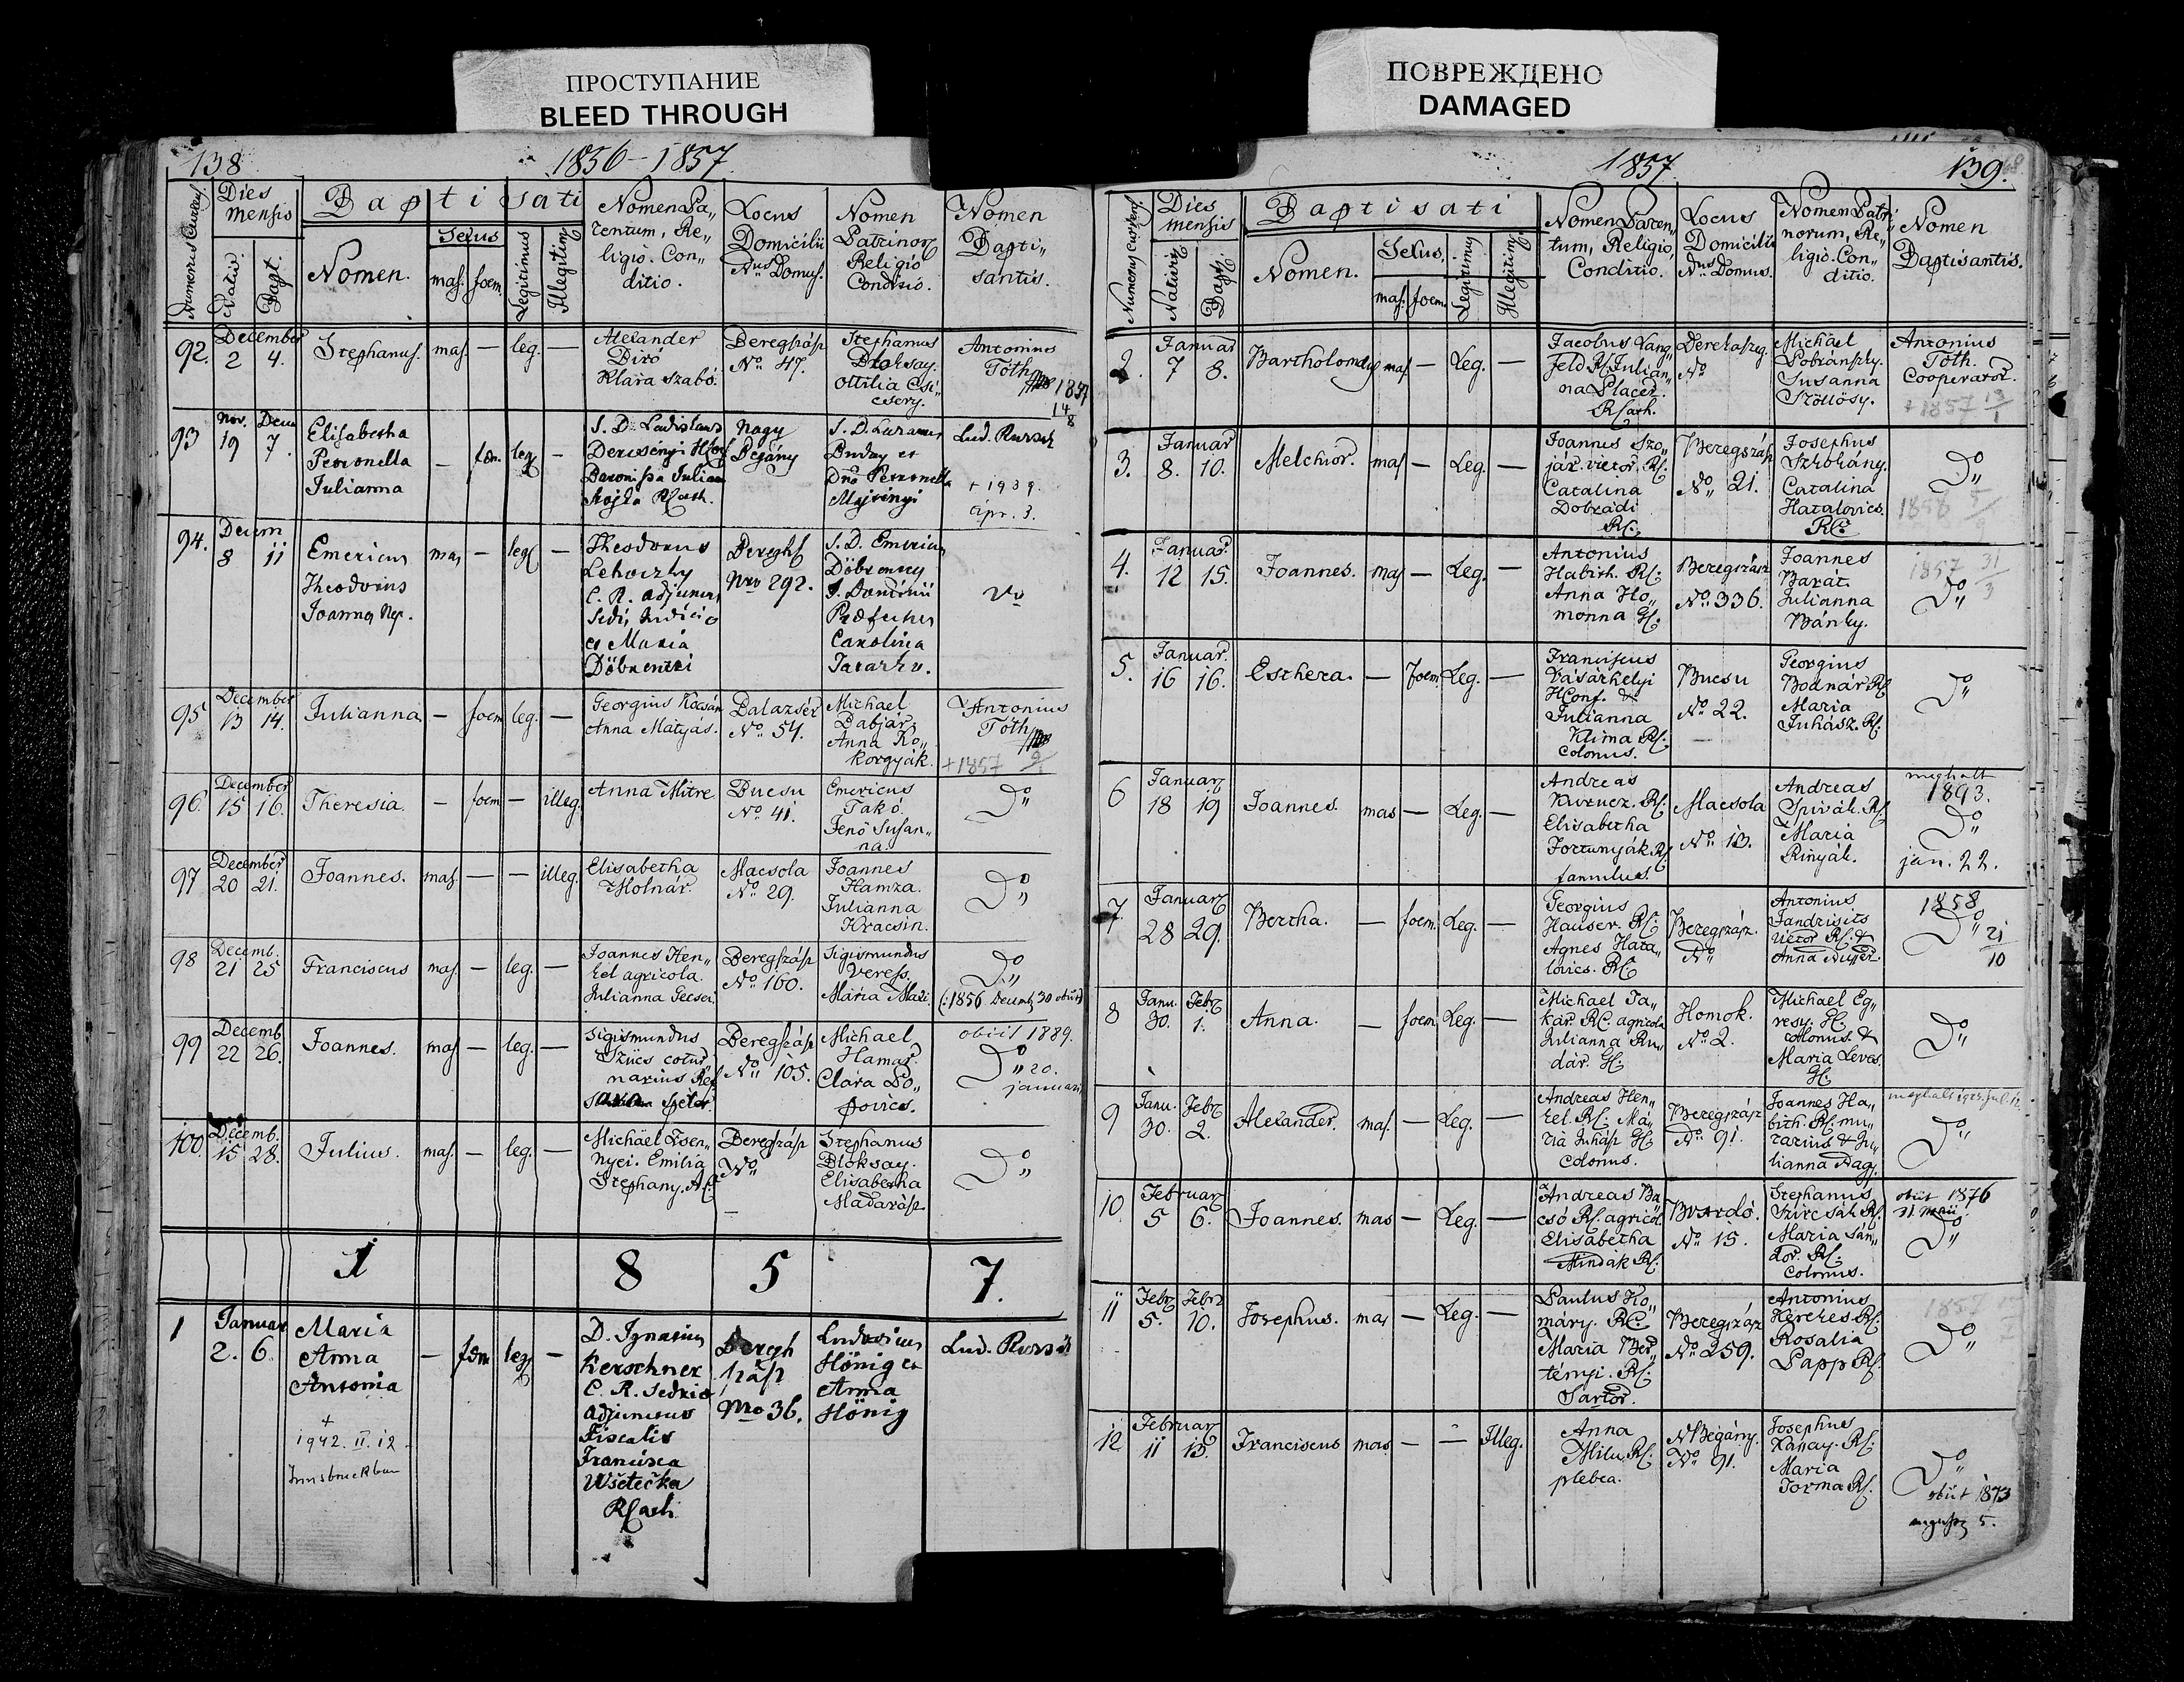 ПРОСТУПАНИЕ
BLEED THROUGH
ПОВРЕЖДЕНО
DAMAGED
138
1856-1857
Numerus Currens.
Dies mensis
Nativ.
Bapt.
Baptisati
Nomen.
Sexus
mas. foem.
Legitimus
Illegitim
Nomen Pa„
rentum, Re„
ligio. Con„
ditio.
Locus
Domicilii
Nus Domus.
Nomen
Patrinor
Religio
Conditio.
Nomen
Bapti„
santis.
92. December
2 4.
Stephanus. mas. — leg. —
Alexander
Biró
Klara Szabó.
Beregszász
No 47.
Stephanus
Bloksay.
Ottilia Csi„
csery.
Antonius
Tóth
1857
14
8
93 Nov. Decem
19 7.
Elisabetha
Petronella
Julianna
— fœm. leg —
S. D. Ladislaus
Dercsényi
Baronissa Julian
R Cath.
Nagy
Begány
S. D. Lazarus
Buday et
Dna Petronella
Lud. Rursch
+ 1939.
apr. 3.
94. Decem
8 11
Emericus
Theodorus
Joannes Nep.
mas — leg —
Theodorus
Lehoczky
C. R. adjunct
et Maria
Döbrentei
Bereghsz
Nro 292.
S. D. Emericus
Döbrentey
S. Dominii
Præfectus
Carolina
Do
95 December
13 14.
Julianna — foem leg. —
Georgius Kocsán
Anna Matyás.
Balazsér
No 54.
Michael
Babjár
Anna Ko„
korgyák.
Antonius
Tóth
+ 1857
96. December
15 16.
Theresia. — foem — illeg.
Anna Mitre
Bucsu
No 41.
Emericus
Takó.
Jenö Susan„
na.
Do„
97 December
20 21.
Joannes. mas. — — illeg.
Elisabetha
Molnár.
Macsola
No 29.
Joannes
Hamza.
Julianna
Kracsin.
Do„
98 Decemb.
21 25
Franciscus mas. — leg. —
Joannes Hen„
kel agricola.
Julianna Gecsei
Beregszász
No 160.
Sigismundus
Veress.
Maria Mari.
Do„
(:1856 Decemb 30 obiit:)
99 Decemb
22 26.
Joannes. mas — leg. —
Sigismundus
Szücs cotur„
narius Ref
Beregszász
No 105.
Michael
Hamar
Clára Po„
povics.
obiit 1889.
Do„ 20.
januari
100. Decemb.
15 28.
Julius. mas. — leg. —
Michael Isen„
nyei. Emilia
Stephany. AC.
Beregszász
No
Stephanus
Bloksay.
Elisabetha
Madarász
Do„
1 8 5 7.
1 Januar
2. 6.
Maria
Anna
Antonia
— fœm leg —
+
1942. II. 12
Innsbruckban
D. Ignatius
Kerschner
C. R. Sedrio
adjunctus
Fiscalis
Francisca
Wšetečka
R Cath
Beregh
szász
Nro 36.
Ludovicus
Hönig et
Anna
Hönig
Lud. Rursch
1857.
139.
Numerus Currens.
Dies
mensis
Nativit
Bapt
Baptisati
Nomen.
Sexus.
mas. foem.
Legitimus
Illegitim
Nomen Paren„
tum, Religio,
Conditio.
Locus
Domicilii
Nus Domus.
Nomen Patri„
norum, Re„
ligio. Con„
ditio.
Nomen
Baptisantis.
2. Januar
7 8.
Bartholomæus mas — Leg. —
Jacobus Lang„
feld RC. Julian„
na Placer.
R Cath.
Derekaszeg.
No
Michael
Dobránszky.
Susanna
Szöllösy.
Antonius
Tóth.
Cooperator.
+ 1857 13/1
3. Januar
8. 10.
Melchior. mas — Leg. —
Joannes Szo„
ják. vietor. RC.
Catalina
Dobradi
RC.
Beregszász
No 21.
Josephus
Catalina
Hatalovics.
RC.
Do„
1858 5/9
4. Januar.
12 15.
Joannes. mas — Leg. —
Antonius
Habith. RC.
Anna Ho„
monna GC.
Beregszász
No 336.
Joannes
Barát.
Julianna
Bánky.
1857 31/3
Do„
5. Januar.
16 16.
Esthera. — foem. Leg. —
Franciscus
Vásárhelyi
HConf. &
Julianna
Klima RC.
Colonus.
Bucsu
No 22.
Georgius
Bodnár RC
Maria
Juhász. RC.
Do„
6 Januar
18 19
Joannes. mas — Leg. —
Andreas
Kurucz. RC.
Elisabetha
Fortunyák RC
famulus.
Macsola
No 13.
Andreas
Spivák. RC.
&
Maria
Rinyák.
meghalt
1893.
Do„
jan. 22.
7. Januar
28 29.
Bertha. — foem. Leg. —
Georgius
Hauser. RC.
Agnes Hata„
lovics. RC
Beregszász.
No
Antonius
Jandrisits
vietor RC. &
Anna
1858
Do„ 21/10
8 Janu. Febr
30. 1.
Anna. — foem Leg. —
Michael Ta„
kár. RC. agricola
Julianna Ru„
dár. GC.
Homok.
No 2.
Michael Eg„
resy. GC.
colonus. &
Maria Leves.
GC.
Do„
9 Janu. Febr
30. 2.
Alexander. mas. — Leg. —
Andreas Hen„
kel. RC. Má„
ria Juhász GC
Colonus.
Beregszász
No 91.
Joannes Ha„
bith. RC. mu„
rarius & Ju„
lianna Nagy.
Do„
10 Februar
5 6.
Joannes. mas — Leg. —
Andreas Ba„
csó RC. agricol.
Elisabetha
Mindák RC.
Buardó.
No 15.
Stephanus
Szircsák RC.
Maria Sán„
dor. RC.
Colonus.
obiit 1876
31 maii
Do„
11 Febr Febr
5. 10.
Josephus. mas — Leg. —
Paulus Ko„
máry. RC.
Maria Ber„
tényi. RC.
Sartor.
Beregszász
No 259.
Antonius
Kerekes RC.
Rosalia
Papp RC.
1857
Do„
12 Februar
11 13.
Franciscus mas — — Illeg.
Anna
Milu. RC.
plebea.
NBegány.
No 91.
Josephus
RC.
Maria
Torma RC.
Do„
obiit 1873
5.